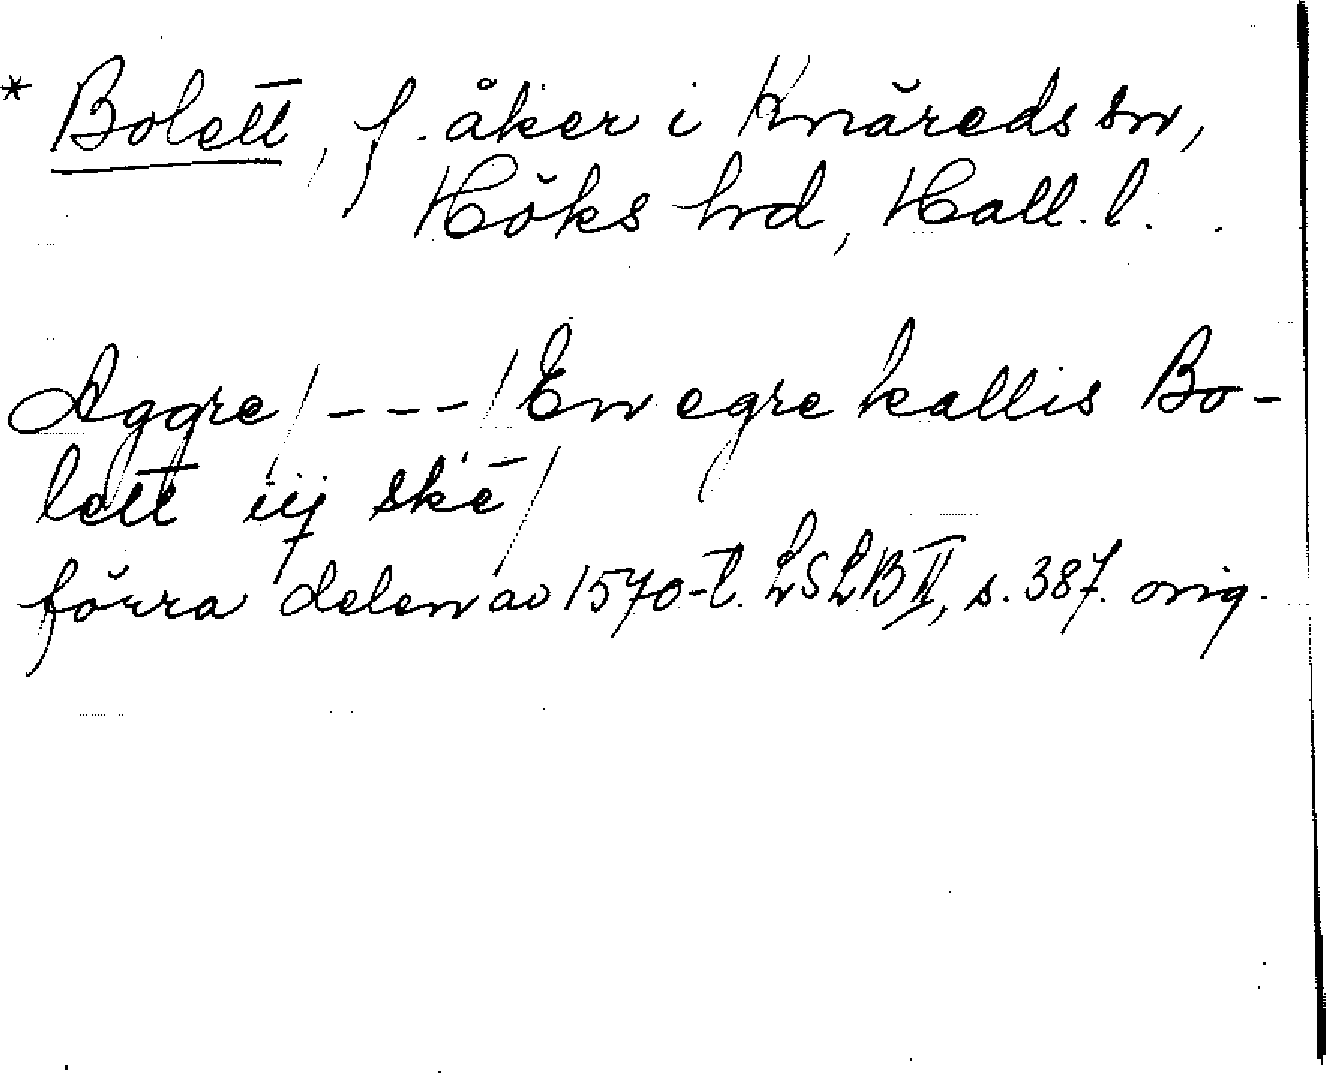 * Bolett, f. åker i Knäreds sn,
Höks hrd, Hall. l.
Aggre / - - - / En egre kallis Bo-
lett iij skē /
förra delen av 1570-t. LSLB II, s. 387. orig.